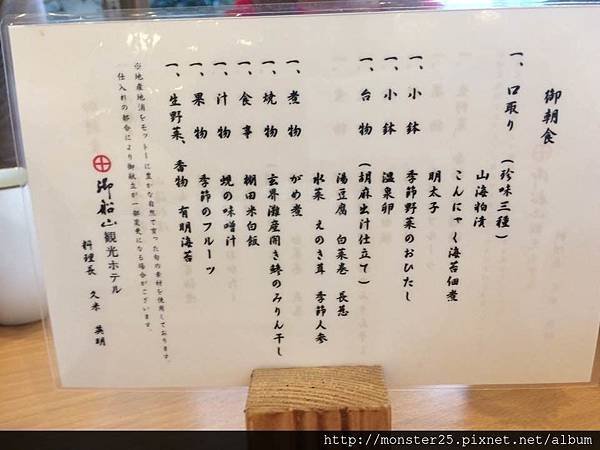 御朝食
一、口取り（珍味三種）
山海粕漬
こんにゃく海苔佃煮
明太子
一、小鉢 季節野菜のおひたし
一、小鉢 温泉卵
一、台物（胡麻出汁仕立て）
湯豆腐 白菜巻 長葱
水菜 えのき茸 季節人参
一、煮物 がめ煮
一、焼物 玄界灘産開き鯵のみりん干し
一、食事 棚田米白飯
一、汁物 蜆の味噌汁
一、果物 季節のフルーツ
一、生野菜、香物 有明海苔
※地産地消をモットーに豊かな自然で育った旬の素材を使用しております。
仕入れ等の都合により御献立が一部変更になる場合がございます。
御船山観光ホテル
料理長 久米 英明
http://monster25.pixnet.net/album